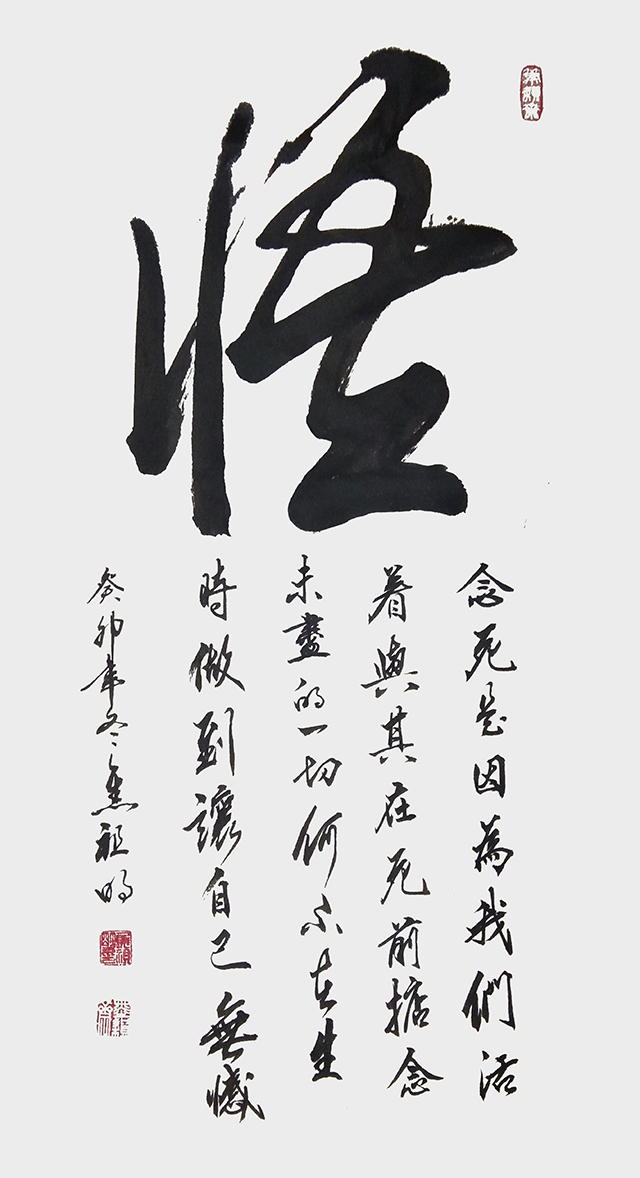 悟
念死是因為我們活
着與其在死前掂念
未盡的一切何不在生
時做到讓自己無憾
癸卯年冬焦祖明